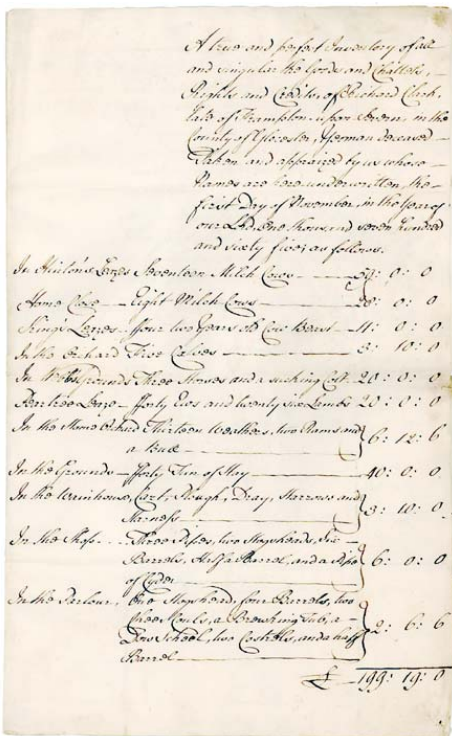 A true and perfect Inventory of all
and singular the Goods and Chattels,
Rights and Credits, of Richard Clark
late of Frampton upon Severn in the
County of Glocester, Yeoman deceased
Taken and appraized by us whose
Names are hereunderwritten, the
first Day of November, in the Year of
our Lord, One thousand seven hundred
and sixty five; as follows.
In Hinton's Leaze Seventeen Milch Cows 59: 0: 0
Home Close Eight Milch Cows 28: 0: 0
King's Leazes ffour two Years old Cow Beast 11: 0: 0
In the Orchard Five Calves 3: 10: 0
In Grounds Three Horses and a sucking Colt 20: 0: 0
Peartree Leaze fforty Ewes and twenty six Lambs 20: 0: 0
In the Home Orchard Thirteen Weathers, two Rams and 6: 12: 6
a
In the Grounds fforty Tun of Hay 40: 0: 0
In the Wainhouse, Cart, Plough, Dray, Harrows and 3: 10: 0
Harness
In the Three Pipes, two Hogsheads, Six
Barrels, Half a Barrel, and a Pipe 6: 0: 0
of Cyder
In the Parlour, One Hogshead, four Barrels, two
a Brewing Tub, a 2: 6: 6
two Costrels, and a half
Barrel
£ 199: 19: 0